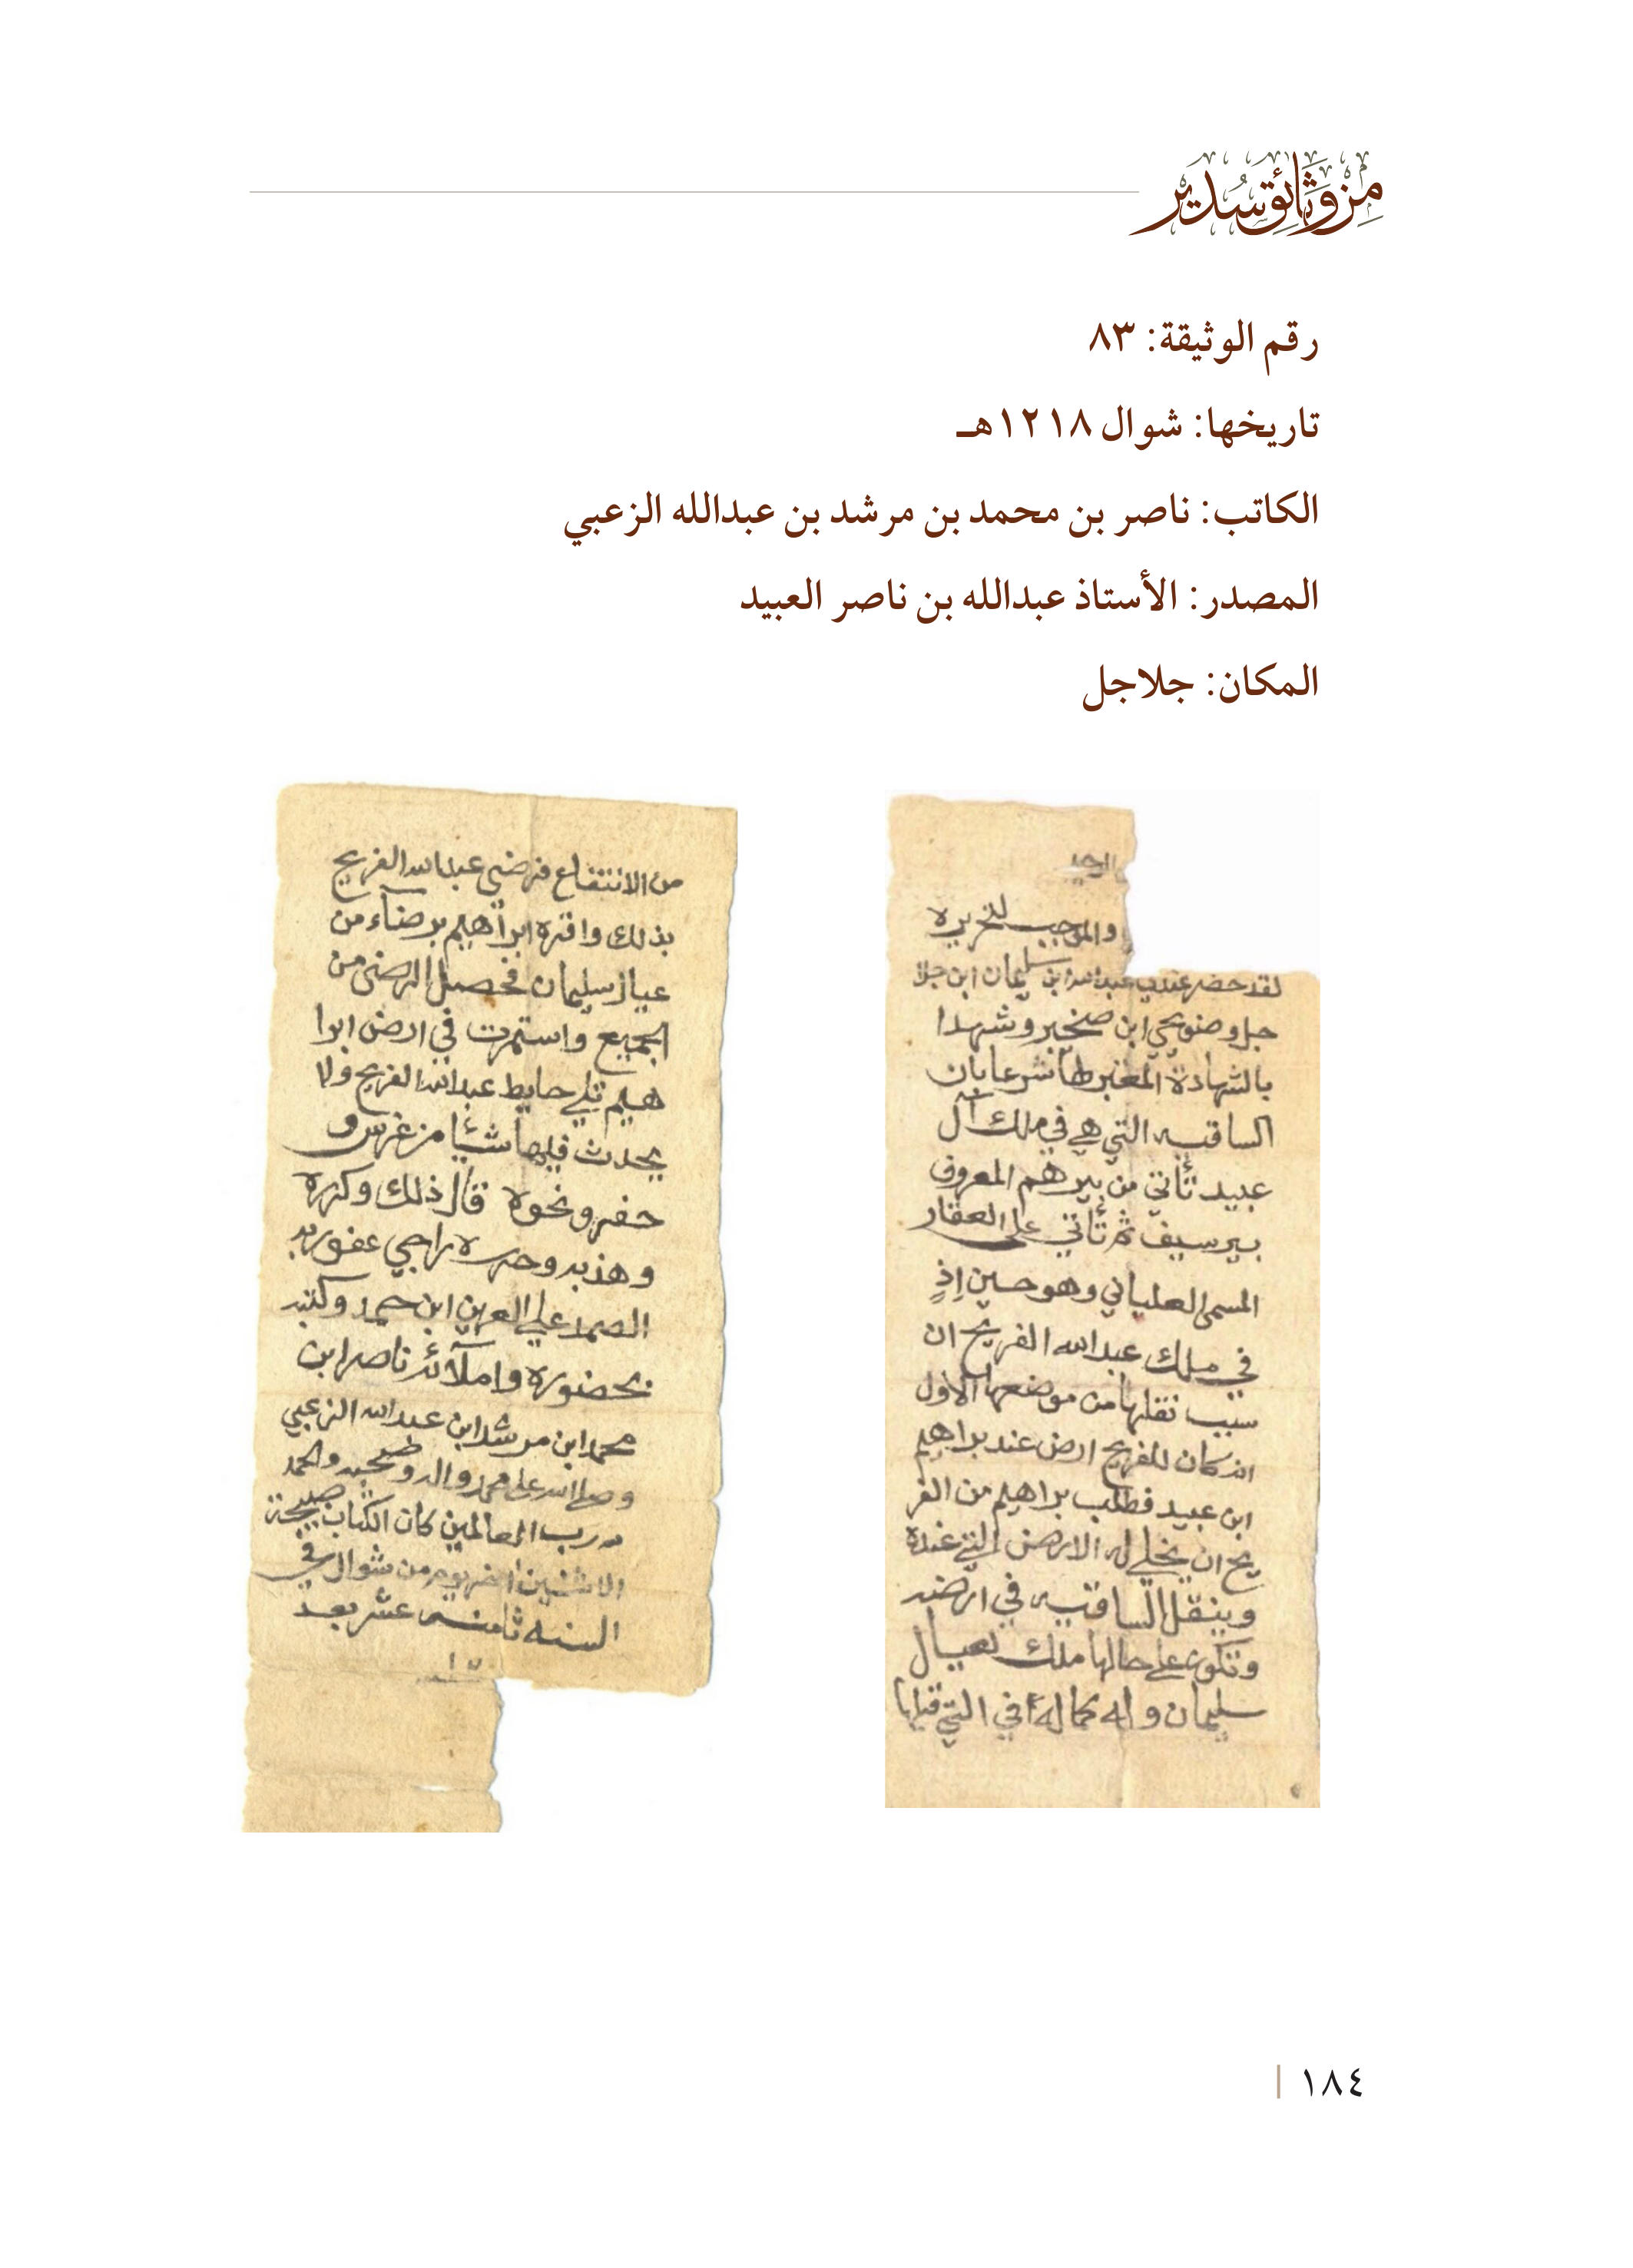 من وثائق سدير
رقم الوثيقة: ٨٣
تاريخها: شوال ١٢١٨هـ
الكاتب: ناصر بن محمد بن مرشد بن عبدالله الزعبي
المصدر: الأستاذ عبدالله بن ناصر العبيد
المكان: جلاجل
والموجب لتحريره
لقد حضر عندي عبدالله ابن سليمان ابن جلا
جل وضويحي ابن صخيبر وشهدا
بالشهادة المعتبرها شرعا بان
الساقيه التي هي في ملك آل
عبيد تأتي من بيرهم المعروف
بير سيف ثم تأتي على العقار
المسمى العلياني وهو حسين إذٍ
في ملك عبدالله الفريح ان
سبب نقلها من موضعها الاول
انه كان للفريح ارض عند براهيم
ابن عبيد فطلب براهيم من الفر
يح ان يخلي له الارض التي عنده
وينقل الساقيه في ارضه
وتكون على حالها ملك لعيال
سليمان وله كما له في التي قبلها
من الانتفاع فرضي عبدالله الفريح
بذلك واقره ابرآهيم برضآء من
عيال سليمان فحصل الرضى من
الجميع واستمرت في ارض ابرا
هيم تلي حايط عبدالله الفريح ولا
يحدث فيها شيأ من غرس و
حفر ونحوه قال ذلك وكرره
وهذبه وحرره راجي عفو ربه
الصمد علي العرين ابن حمد وكتبه
بحضوره واملآئه ناصر ابن
محمد ابن مرشد ابن عبدالله الزعبي
وصلى الله على محمد واله وصحبه والحمد
لله رب العالمين كان الكتاب صبيحة
الاثنين اخر يوم من شوال في
السنه ثامنه عشر بعد
١٨٤